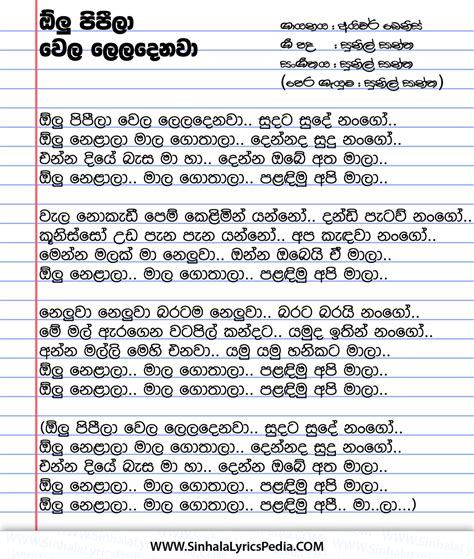 ඕලු පිපීලා
වෙල ලෙලදෙනවා
ගායනය : අයිවර් ඩෙනිස්
ගී පද : සුනිල් සාන්ත
සංගීතය : සුනිල් සාන්ත
(පෙර ගැයුම : සුනිල් සාන්ත)
ඕලු පිපීලා වෙල ලෙලදෙනවා.. සුදට සුදේ නංගෝ..
ඕලු නෙළාලා මාල ගොතාලා.. දෙන්නද සුදු නංගෝ..
එන්න දියේ බැස මා හා.. දෙන්න ඔබේ අත මාලා..
ඕලු නෙළාලා.. මාල ගොතාලා.. පළඳිමු අපි මාලා..
වැල නොකැඩී පෙම් කෙළිමින් යන්නෝ.. දන්ඩි පැටව් නංගෝ..
කූනිස්සෝ උඩ පැන පැන යන්නෝ.. අප කැඳවා නංගෝ..
මෙන්න මලක් මා නෙලුවා.. ඔන්න ඔබෙයි ඒ මාලා..
ඕලු නෙළාලා.. මාල ගොතාලා.. පළඳිමු අපි මාලා..
නෙලුවා නෙලුවා බරටම නෙලුවා.. බරට බරයි නංගෝ..
මේ මල් ඇරගෙන වටපිල් කන්දට.. යමුද ඉතින් නංගෝ..
අන්න මල්ලි මෙහි එනවා.. යමු යමු හනිකට මාලා..
ඕලු නෙළාලා.. මාල ගොතාලා.. පළඳිමු අපි මාලා..
ඕලු නෙළාලා.. මාල ගොතාලා.. පළඳිමු අපි මාලා..
(ඕලු පිපීලා වෙල ලෙලදෙනවා.. සුදට සුදේ නංගෝ..
ඕලු නෙළාලා මාල ගොතාලා.. දෙන්නද සුදු නංගෝ..
එන්න දියේ බැස මා හා.. දෙන්න ඔබේ අත මාලා..
ඕලු නෙළාලා.. මාල ගොතාලා.. පළඳිමු අපි මාලා..
ඕලු නෙළාලා.. මාල ගොතාලා.. පළඳිමු අපී.. මා..ලා...)
www.SinhalaLyricsPedia.com